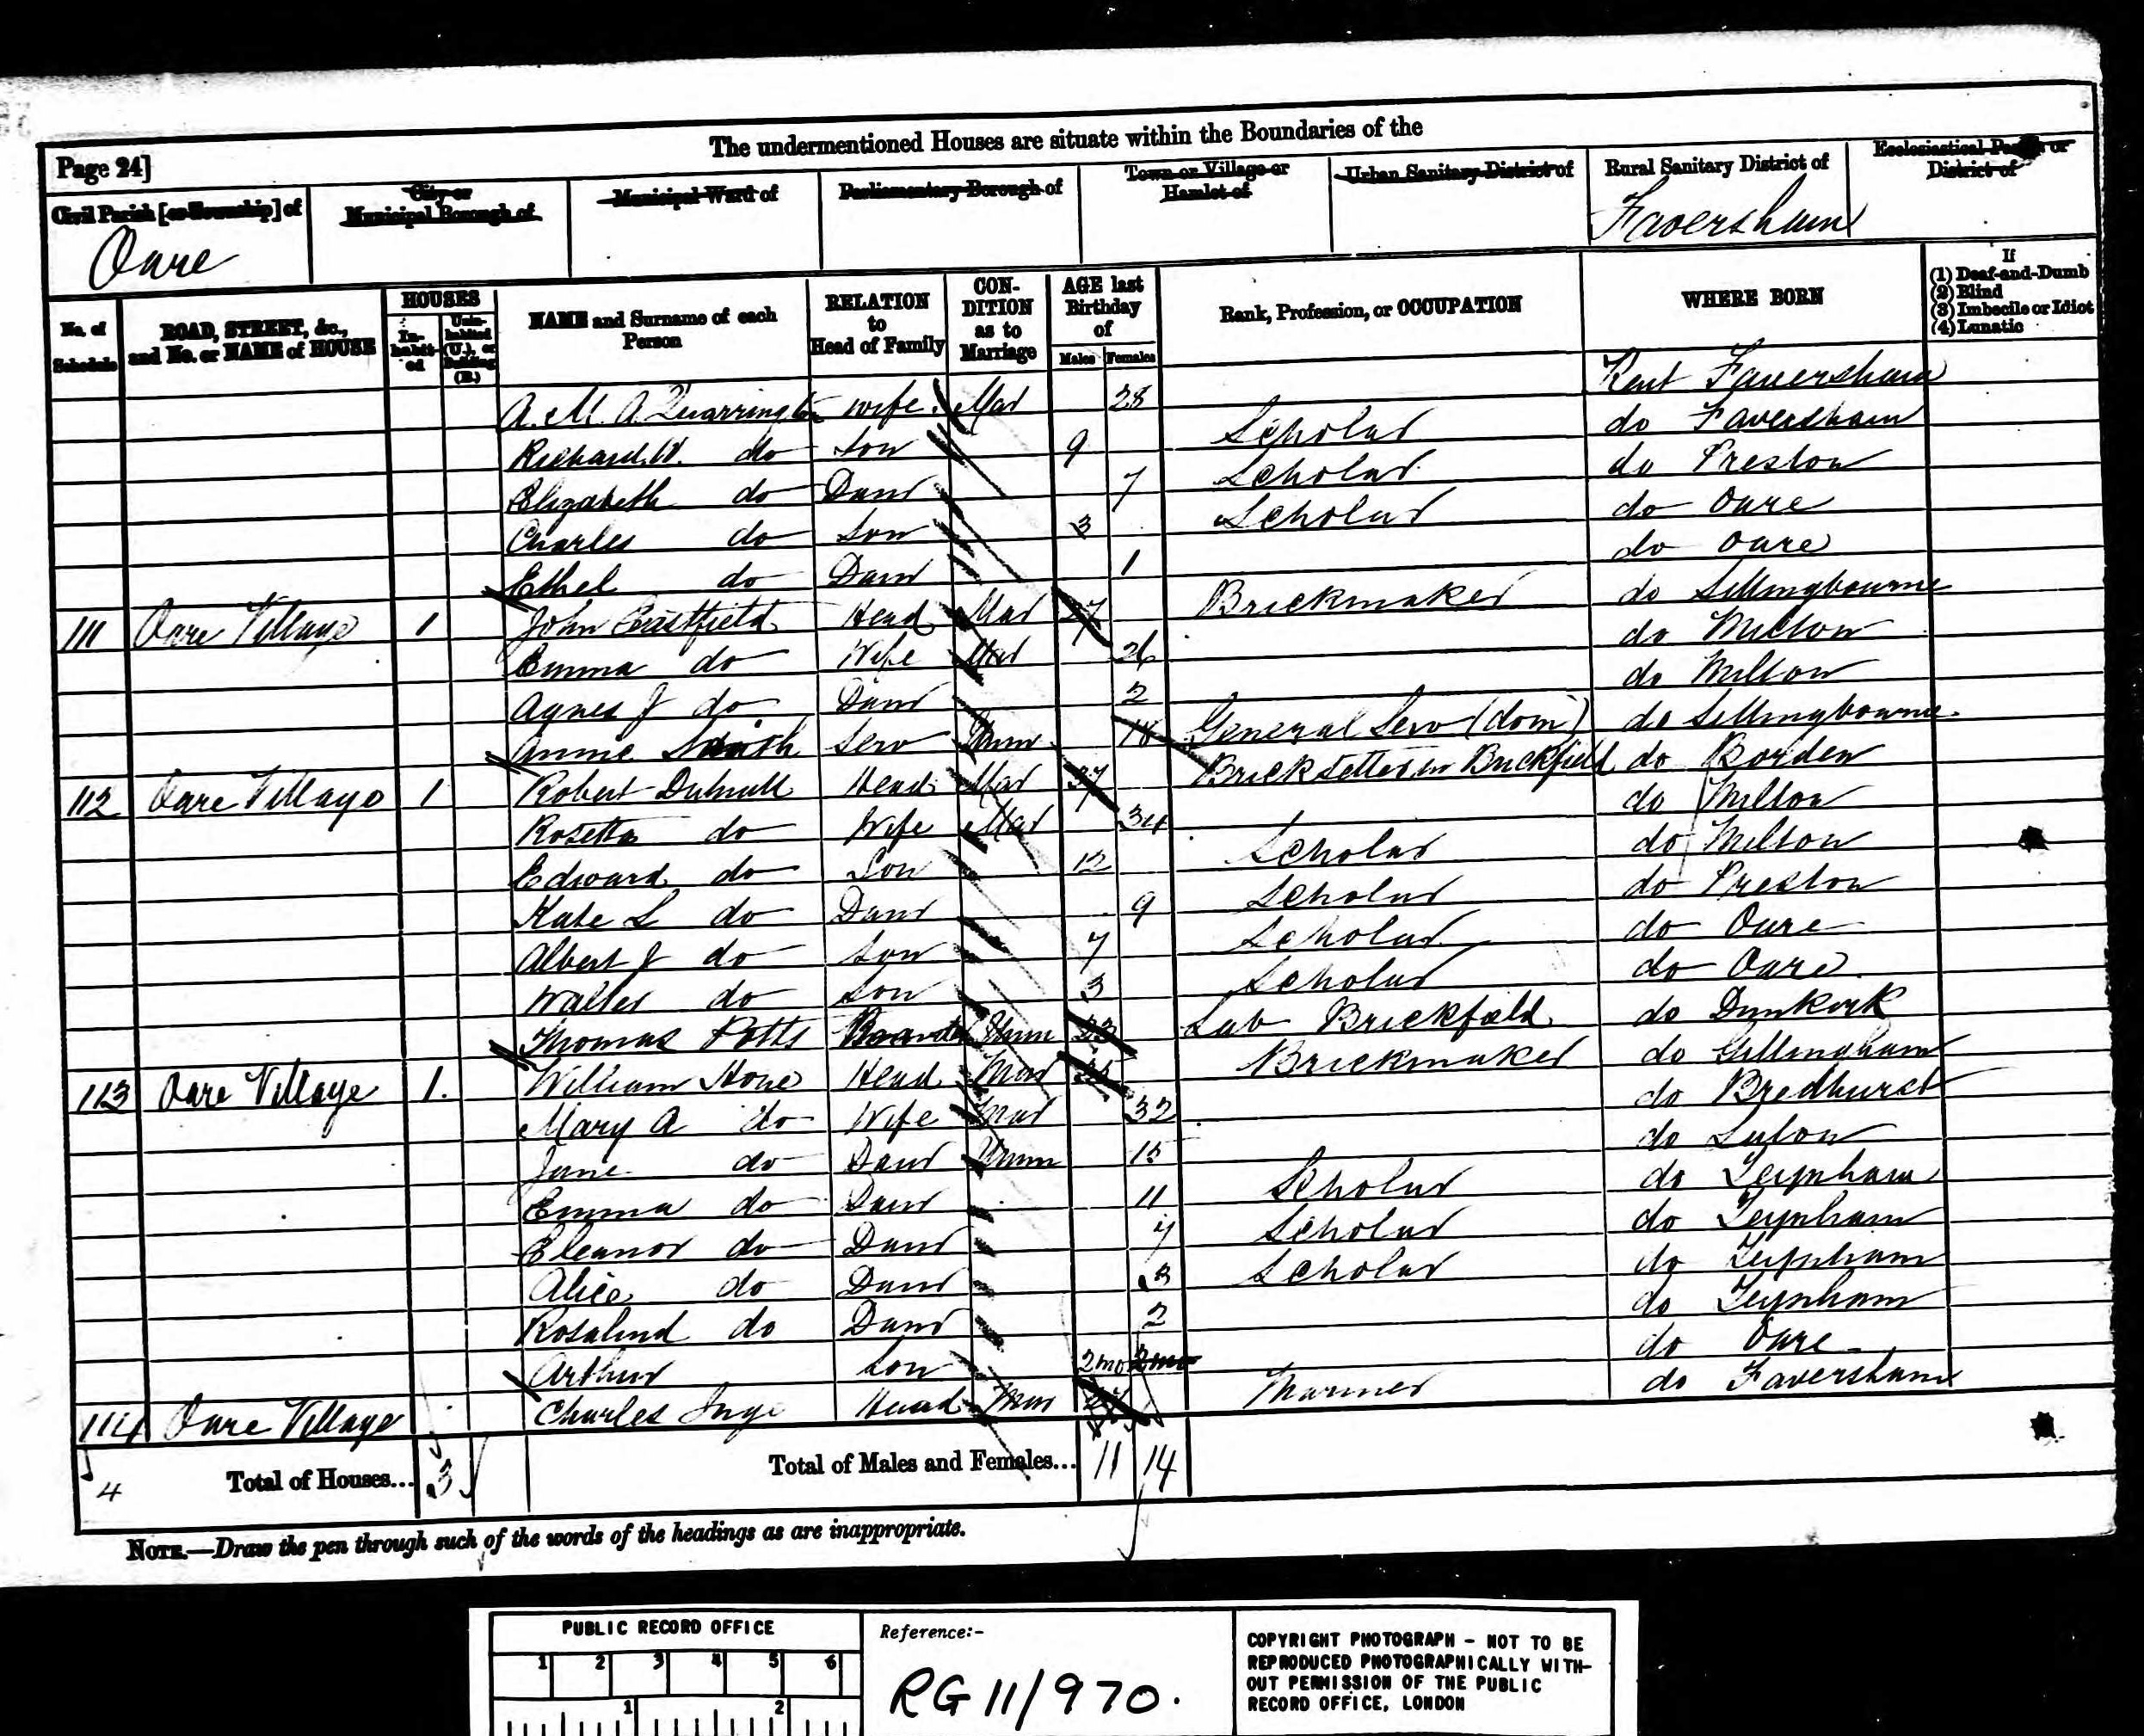 The undermentioned Houses are situate within the Boundaries of the
Page 24]
Civil Parish [or Township] of
City or Municipal Borough of
Municipal Ward of
Parliamentary Borough of
Town or Village or Hamlet of
Urban Sanitary District of
Rural Sanitary District of
Ecclesiastical Parish or District of
Oare
Faversham
No. of Schedule
ROAD, STREET, &c., and No. or NAME of HOUSE
HOUSES
In-habit-ed
Unin-habited (U.), or Building (B.)
NAME and Surname of each Person
RELATION to Head of Family
CON-DITION as to Marriage
AGE last Birthday of
Males Females
Rank, Profession, or OCCUPATION
WHERE BORN
If
(1) Deaf-and-Dumb
(2) Blind
(3) Imbecile or Idiot
(4) Lunatic
A. M. A. Quarrington wife Mar 28 Kent Faversham
Richard W. do Son 9 Scholar do Faversham
Elizabeth do Daur 7 Scholar do Preston
Charles do Son 3 Scholar do Oare
Ethel do Daur 1 do Oare
111 Oare Village 1 John Head Mar 27 Brickmaker do Sittingbourne
Emma do Wife Mar 26 do Milton
Agnes J do Daur 2 do Milton
Annie Serv Unm 18 General Serv (dom) do Sittingbourne
112 Oare Village 1 Robert Head Mar 37 Bricksetter in Brickfield do Borden
Rosetta do Wife Mar 34 do Milton
Edward do Son 12 Scholar do Milton
Kate L do Daur 9 Scholar do Preston
Albert J do Son 7 Scholar do Oare
Walter do Son 3 Scholar do Oare
Thomas Potts Boarder Unm 23 Lab Brickfield do Dunkirk
113 Oare Village 1 William Hone Head Mar Brickmaker do Gillingham
Mary A do Wife Mar 32 do Bredhurst
Jane do Daur Unm 15 do Luton
Emma do Daur 11 Scholar do Teynham
Eleanor do Daur 7 Scholar do Teynham
Alice do Daur 3 Scholar do Teynham
Rosalind do Daur 2 do Teynham
Arthur Son 2mo 2mo do Oare
114 Oare Village Charles Inge Head Mar Mariner do Faversham
4 Total of Houses... 3 Total of Males and Females... 11 14
NOTE.—Draw the pen through such of the words of the headings as are inappropriate.
PUBLIC RECORD OFFICE
1 2 3 4 5 6
1 2
Reference:-
RG 11/970.
COPYRIGHT PHOTOGRAPH - NOT TO BE
REPRODUCED PHOTOGRAPHICALLY WITH-
OUT PERMISSION OF THE PUBLIC
RECORD OFFICE, LONDON